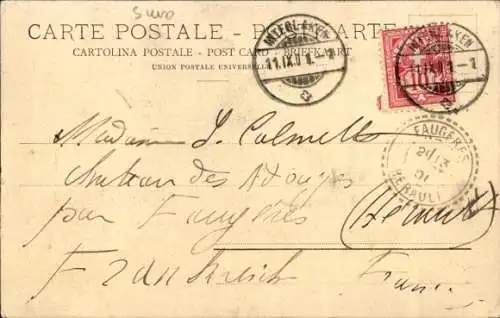 Suisse
CARTE POSTALE - POSTKARTE
CARTOLINA POSTALE - POST CARD - BRIEFKAART
UNION POSTALE UNIVERSELLE
INTERLAKEN
11.IX.01.-1
INTERLAKEN
11.IX.01.-1
FAUGERES
HERAULT
Madame L. Calmels
Chateau des Adouzes
par Faugères (Hérault)
Frankreich France